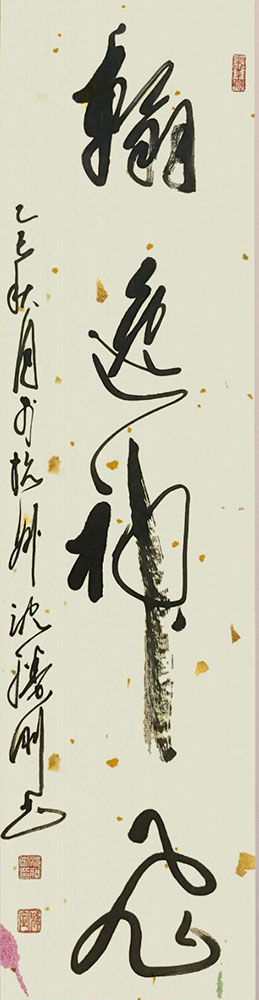 翰逸神飞
乙巳秋月于杭州沈 明书